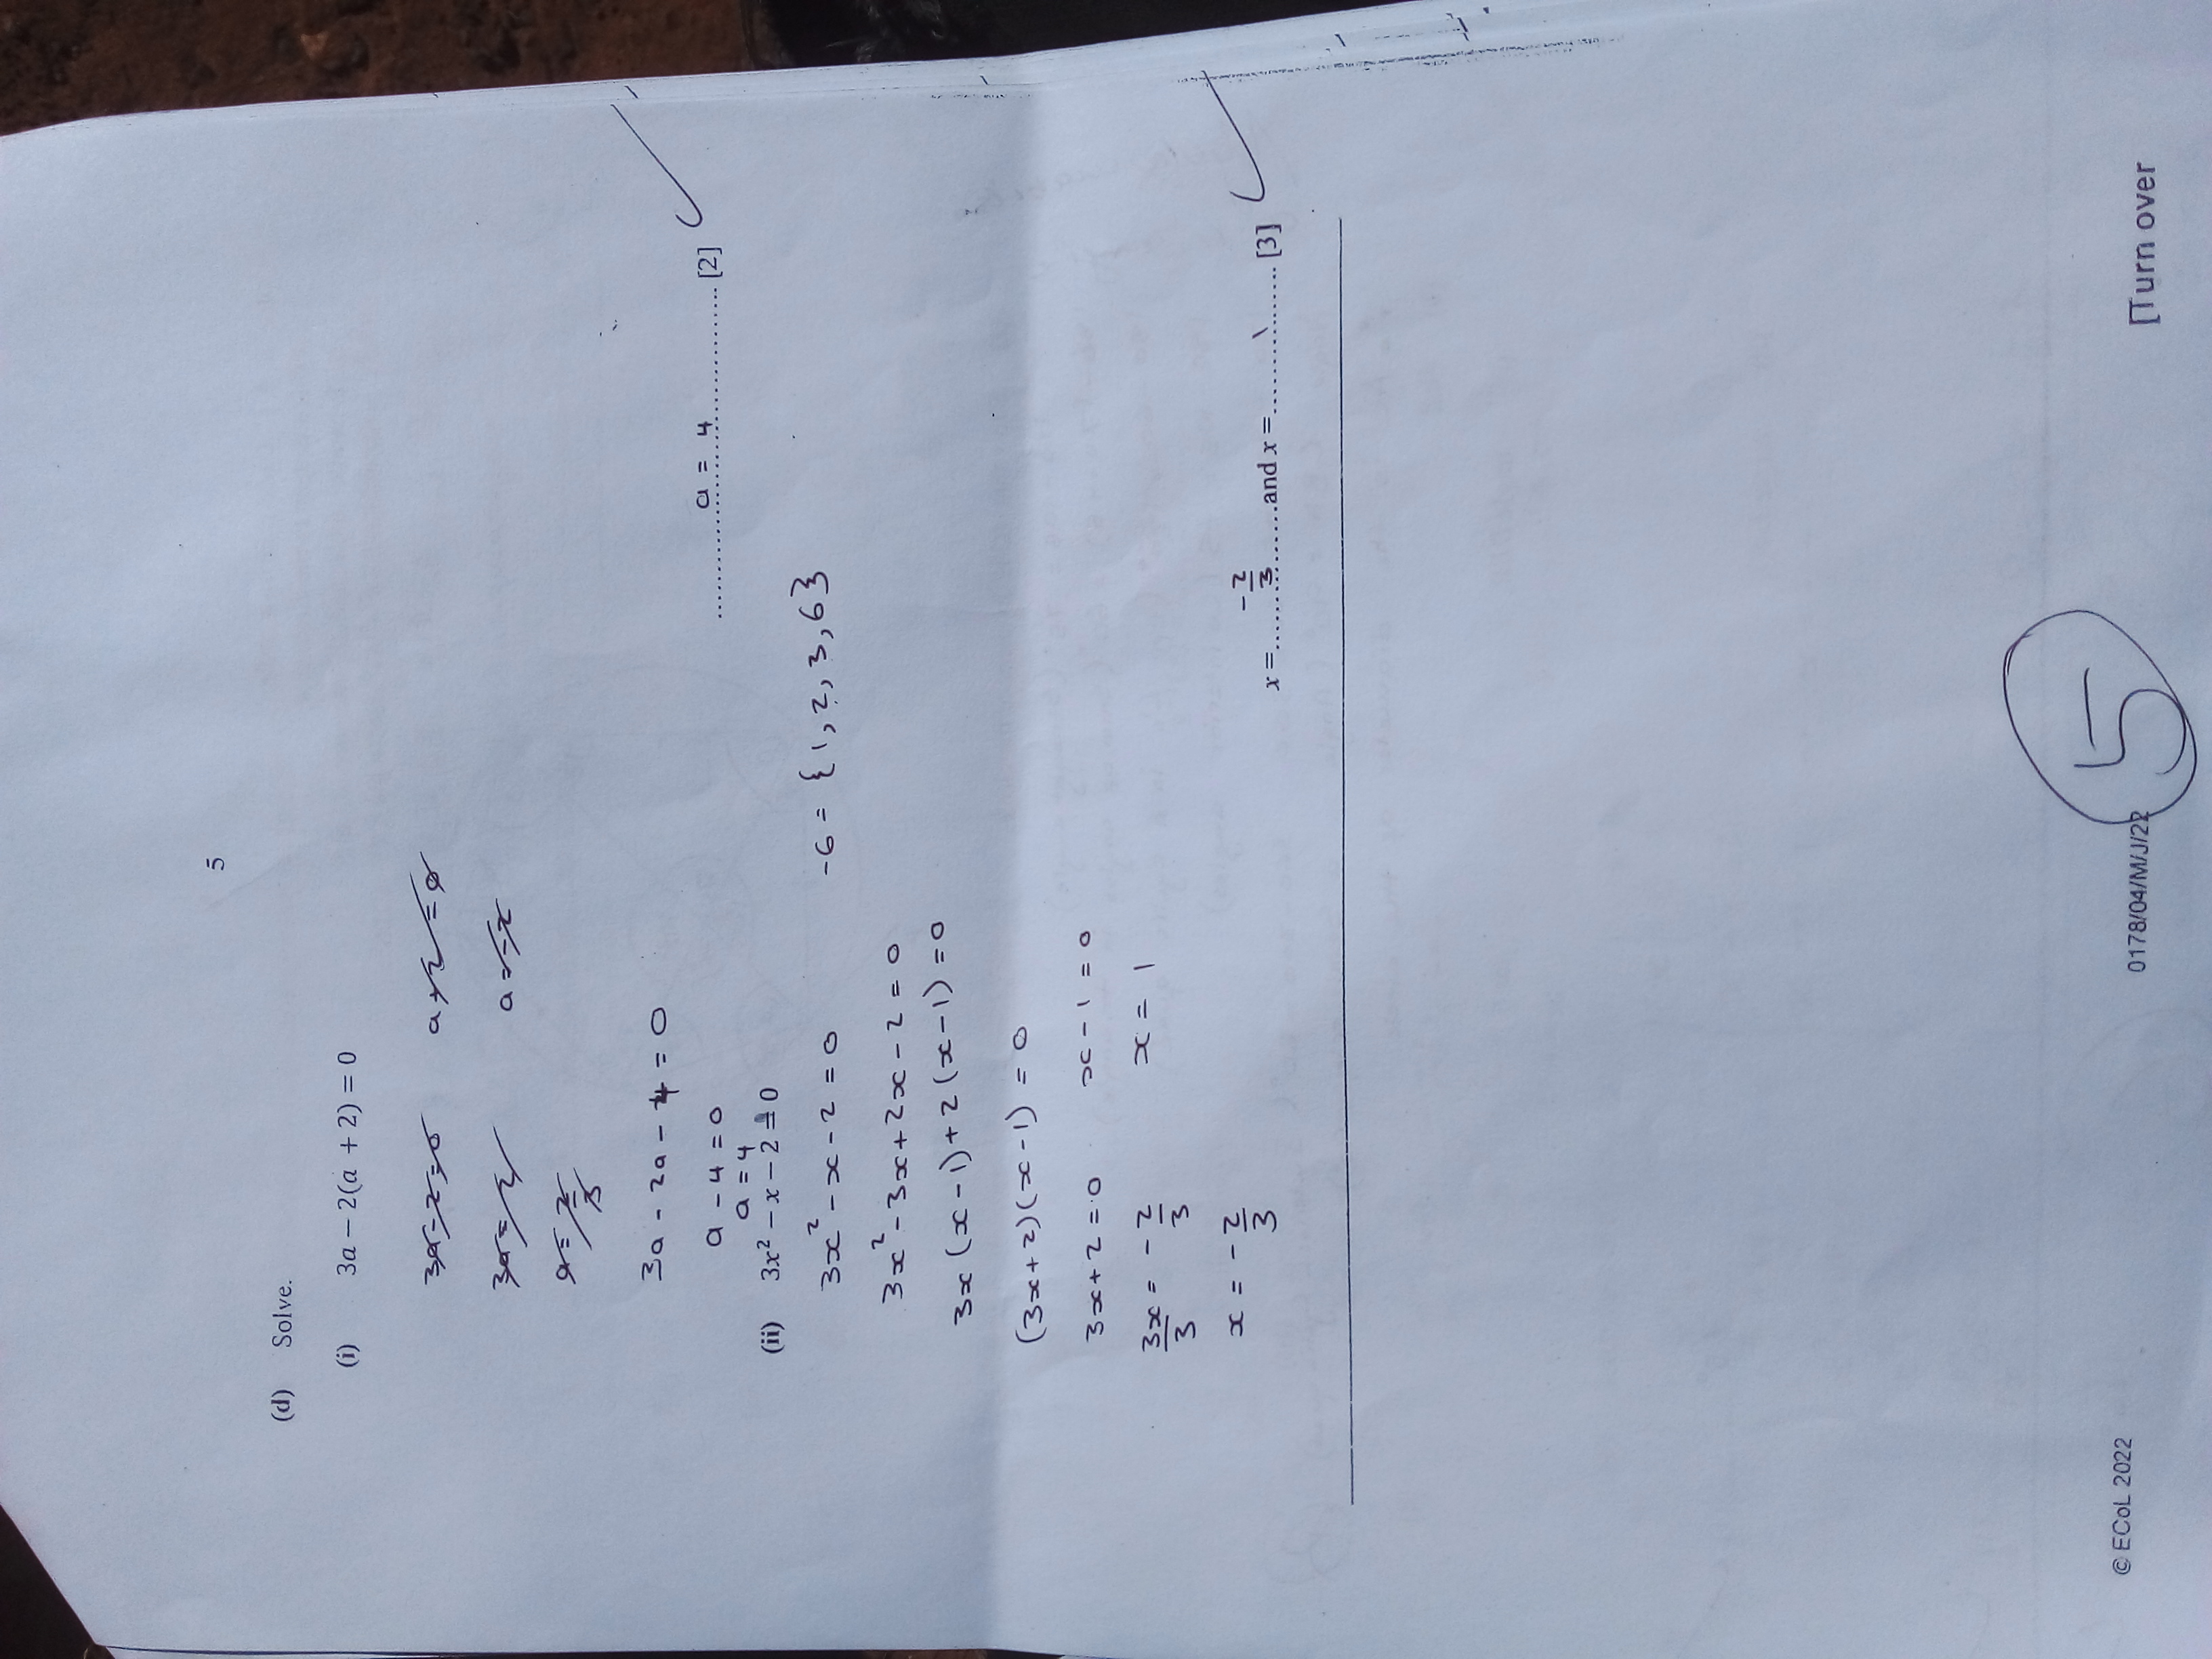 5
(d) Solve.
(i) 3a − 2(a + 2) = 0
3a - 2 = 0 a + 2 = 0
3a = 2 a = -2
a = 2/3
3a - 2a - 4 = 0
a - 4 = 0
a = 4 [2]
a = 4
(ii) 3x² − x − 2 = 0
3x² - x - 2 = 0 -6 = {1, 2, 3, 6}
3x² - 3x + 2x - 2 = 0
3x (x - 1) + 2 (x - 1) = 0
(3x + 2)(x - 1) = 0
3x + 2 = 0 x - 1 = 0
3x/3 = - 2/3 x = 1
x = - 2/3
x = -2/3 and x = 1 [3]
5
© ECoL 2022 0178/04/M/J/22 [Turn over